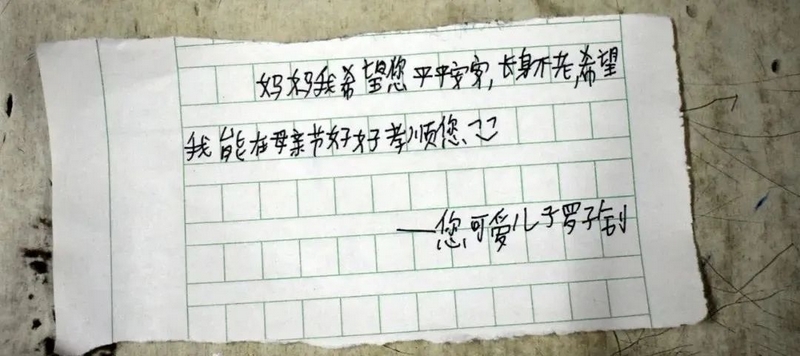 妈妈我希望您平平安安,长身不老,希望
我能在母亲节好好孝顺您
——您可爱儿子罗子钊